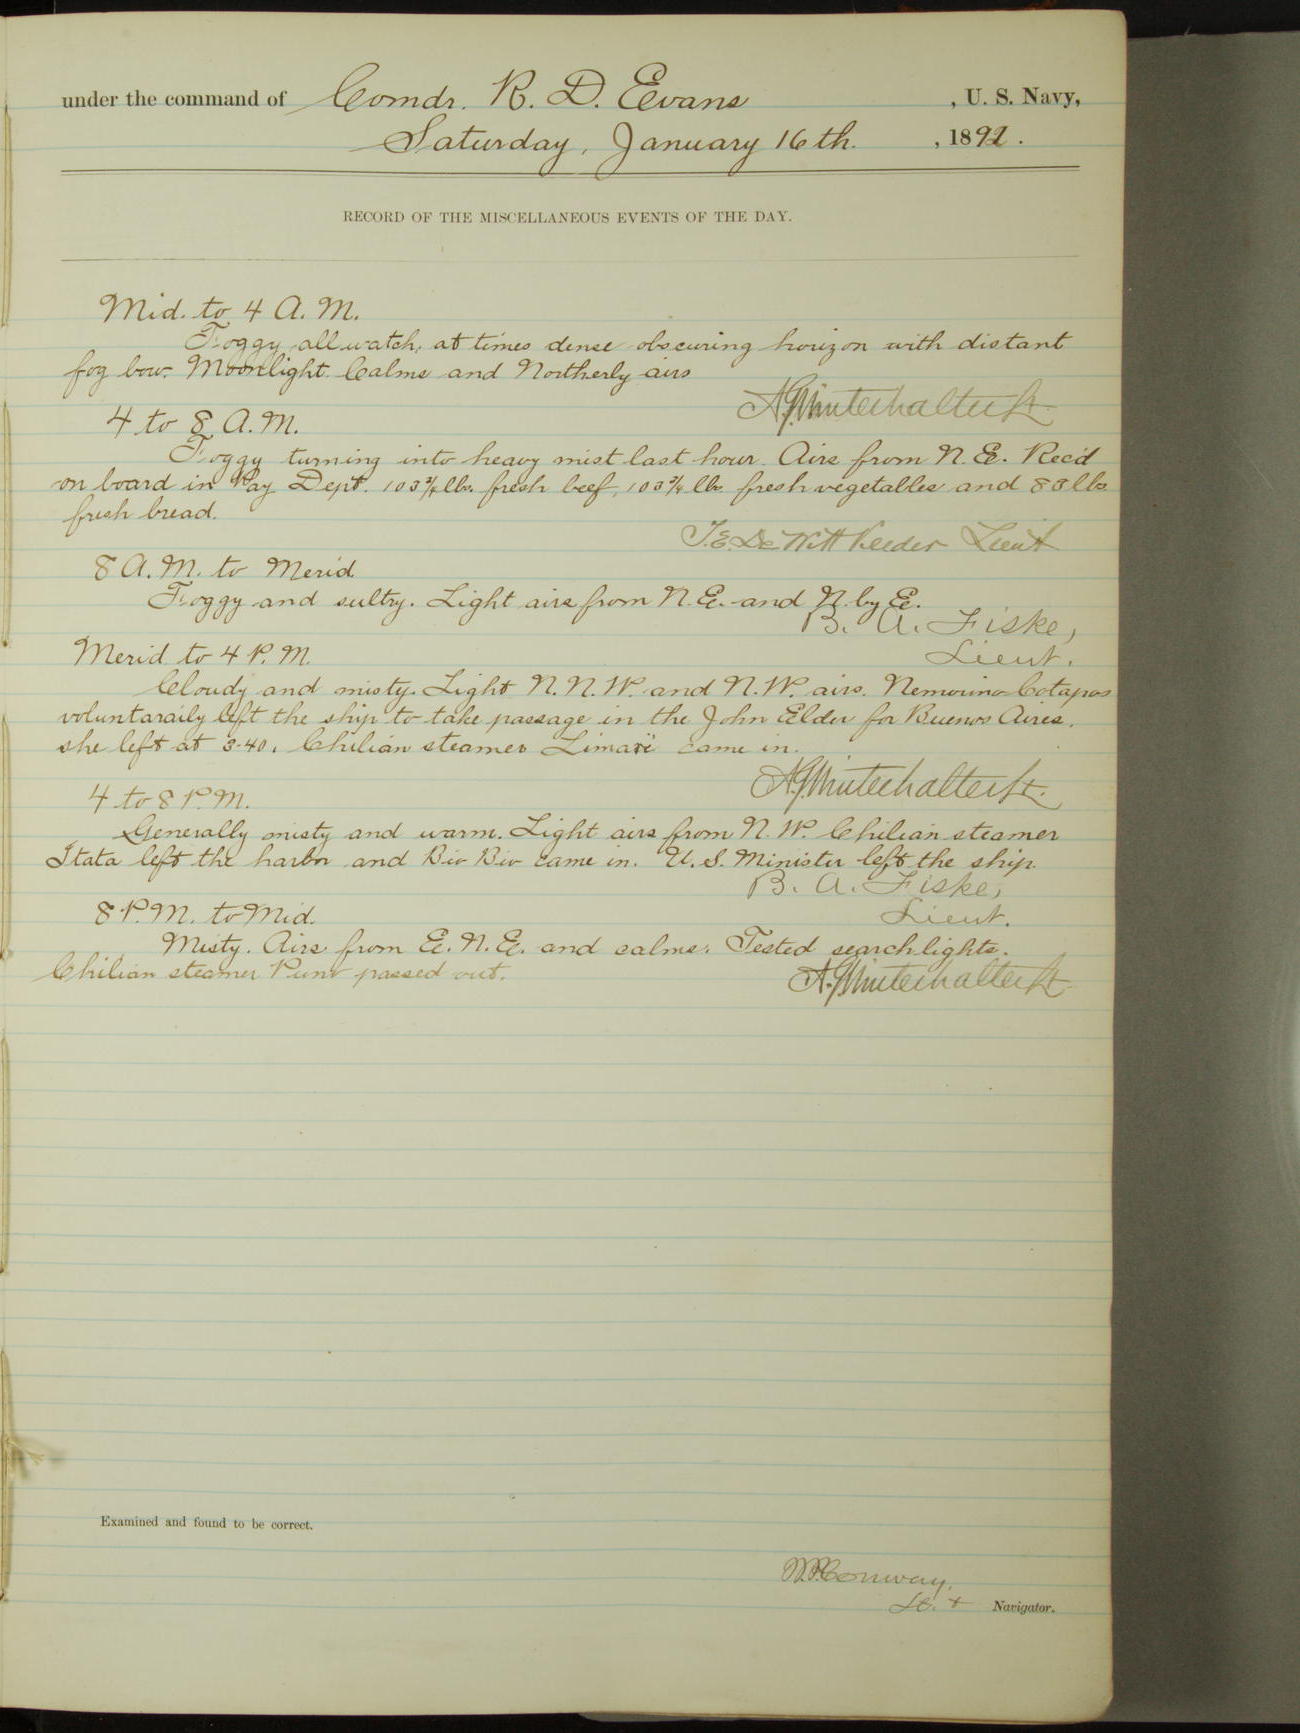 under the command of Comdr. R. D. Evans, U. S. Navy,
Saturday, January 16th., 1892.
RECORD OF THE MISCELLANEOUS EVENTS OF THE DAY.
Mid. to 4 A. M.
Foggy all watch, at times dense obscuring horizon with distant
fog bow. Moonlight. Calms and Northerly airs
A. G. Winterhalter Lt.
4 to 8 A. M.
Foggy turning into heavy mist last hour. Airs from N. E. Rec'd
on board in Pay Dept. 103 3/4 lbs. fresh beef, 103 3/4 lbs. fresh vegetables and 83 lbs
fresh bread.
T. E. De Witt Veeder Lieut
8 A. M. to Merid.
Foggy and sultry. Light airs from N. E. and N. by E.
B. A. Fiske,
Lieut.
Merid. to 4 P. M.
Cloudy and misty. Light N. N. W. and N. W. airs. Nemorino Cotapos
voluntaraily left the ship to take passage in the John Elder for Buenos Aires.
she left at 3-40. Chilian steamer Limarï came in.
A. G. Winterhalter Lt.
4 to 8 P. M.
Generally misty and warm. Light airs from N. W. Chilian steamer
Itata left the harbor and Bio Bio came in. U. S. Minister left the ship.
B. A. Fiske,
Lieut.
8 P. M. to Mid.
Misty. Airs from E. N. E. and calms. Tested searchlights.
Chilian steamer Puno passed out.
A. G. Winterhalter Lt.
Examined and found to be correct.
W. P. Conway,
Lt. + Navigator.